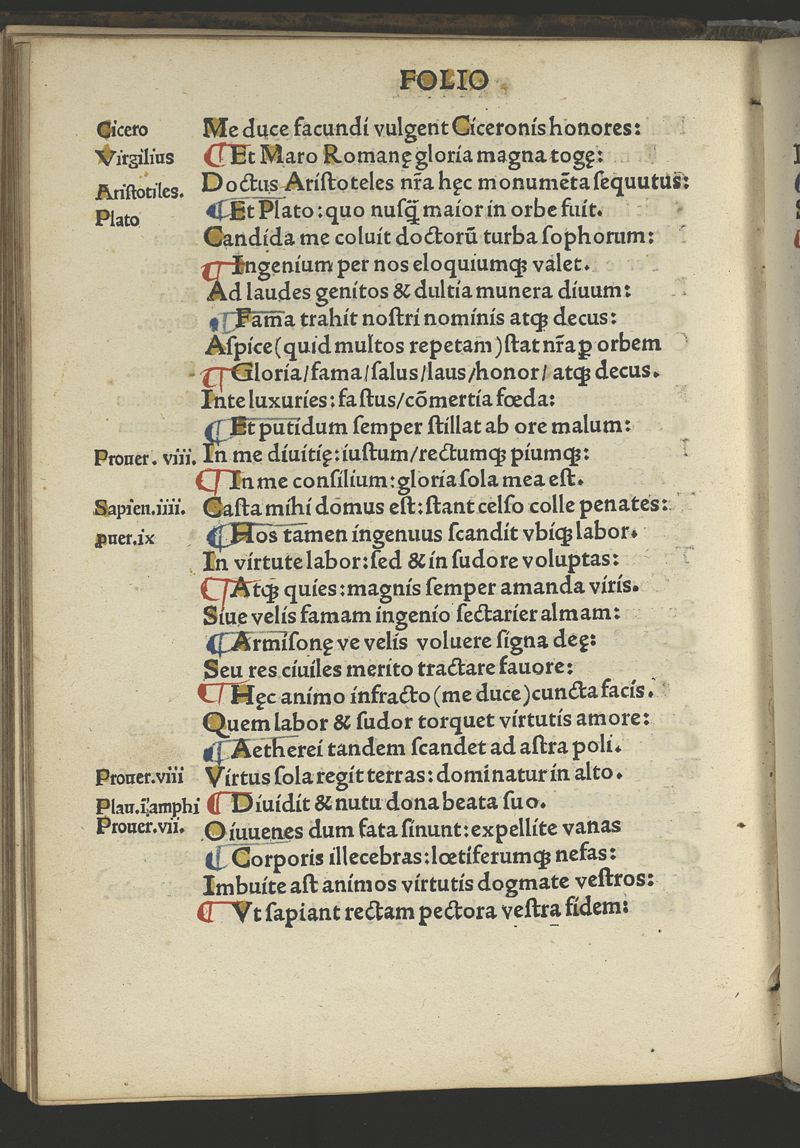 FOLIO
Cicero
Me duce facundi vulgent Ciceronis honores:
Virgilius
¶ Et Maro Romanę gloria magna togę:
Aristotiles.
Doctus Aristoteles nr̃a hęc monumẽta sequutus:
Plato
¶ Et Plato: quo nusq̃ maior in orbe fuit.
Candida me coluit doctorũ turba sophorum:
¶ Ingenium per nos eloquiumqꝫ valet.
Ad laudes genitos & dultia munera diuum:
¶ Fama trahit nostri nominis atqꝫ decus:
Aspice (quid multos repetam) stat nr̃a ꝑ orbem
¶ Gloria/fama/salus/laus/honor/ atqꝫ decus.
Inte luxuries: fastus/cõmertia fœda:
¶ Et putidum semper stillat ab ore malum:
Prouer. viii.
In me diuitię: iustum/rectumqꝫ piumqꝫ:
¶ In me consilium: gloria sola mea est.
Sapien.iiii.
Casta mihi domus est: stant celso colle penates:
ꝓuer.ix
¶ Hos tamen ingenuus scandit vbiqꝫ labor.
In virtute labor: sed & in sudore voluptas:
¶ Atqꝫ quies: magnis semper amanda viris.
Siue velis famam ingenio sectarier almam:
¶ Armisonę ve velis voluere signa deę:
Seu res ciuiles merito tractare fauore:
¶ Hęc animo infracto (me duce) cuncta facis.
Quem labor & sudor torquet virtutis amore:
¶ Aetherei tandem scandet ad astra poli.
Prouer.viii
Virtus sola regit terras: dominatur in alto.
Plau.ĩ amphi
¶ Diuidit & nutu dona beata suo.
Prouer.vii.
O iuuenes dum fata sinunt: expellite vanas
¶ Corporis illecebras: lœtiferumqꝫ nefas:
Imbuite ast animos virtutis dogmate vestros:
¶ Vt sapiant rectam pectora vestra fidem: